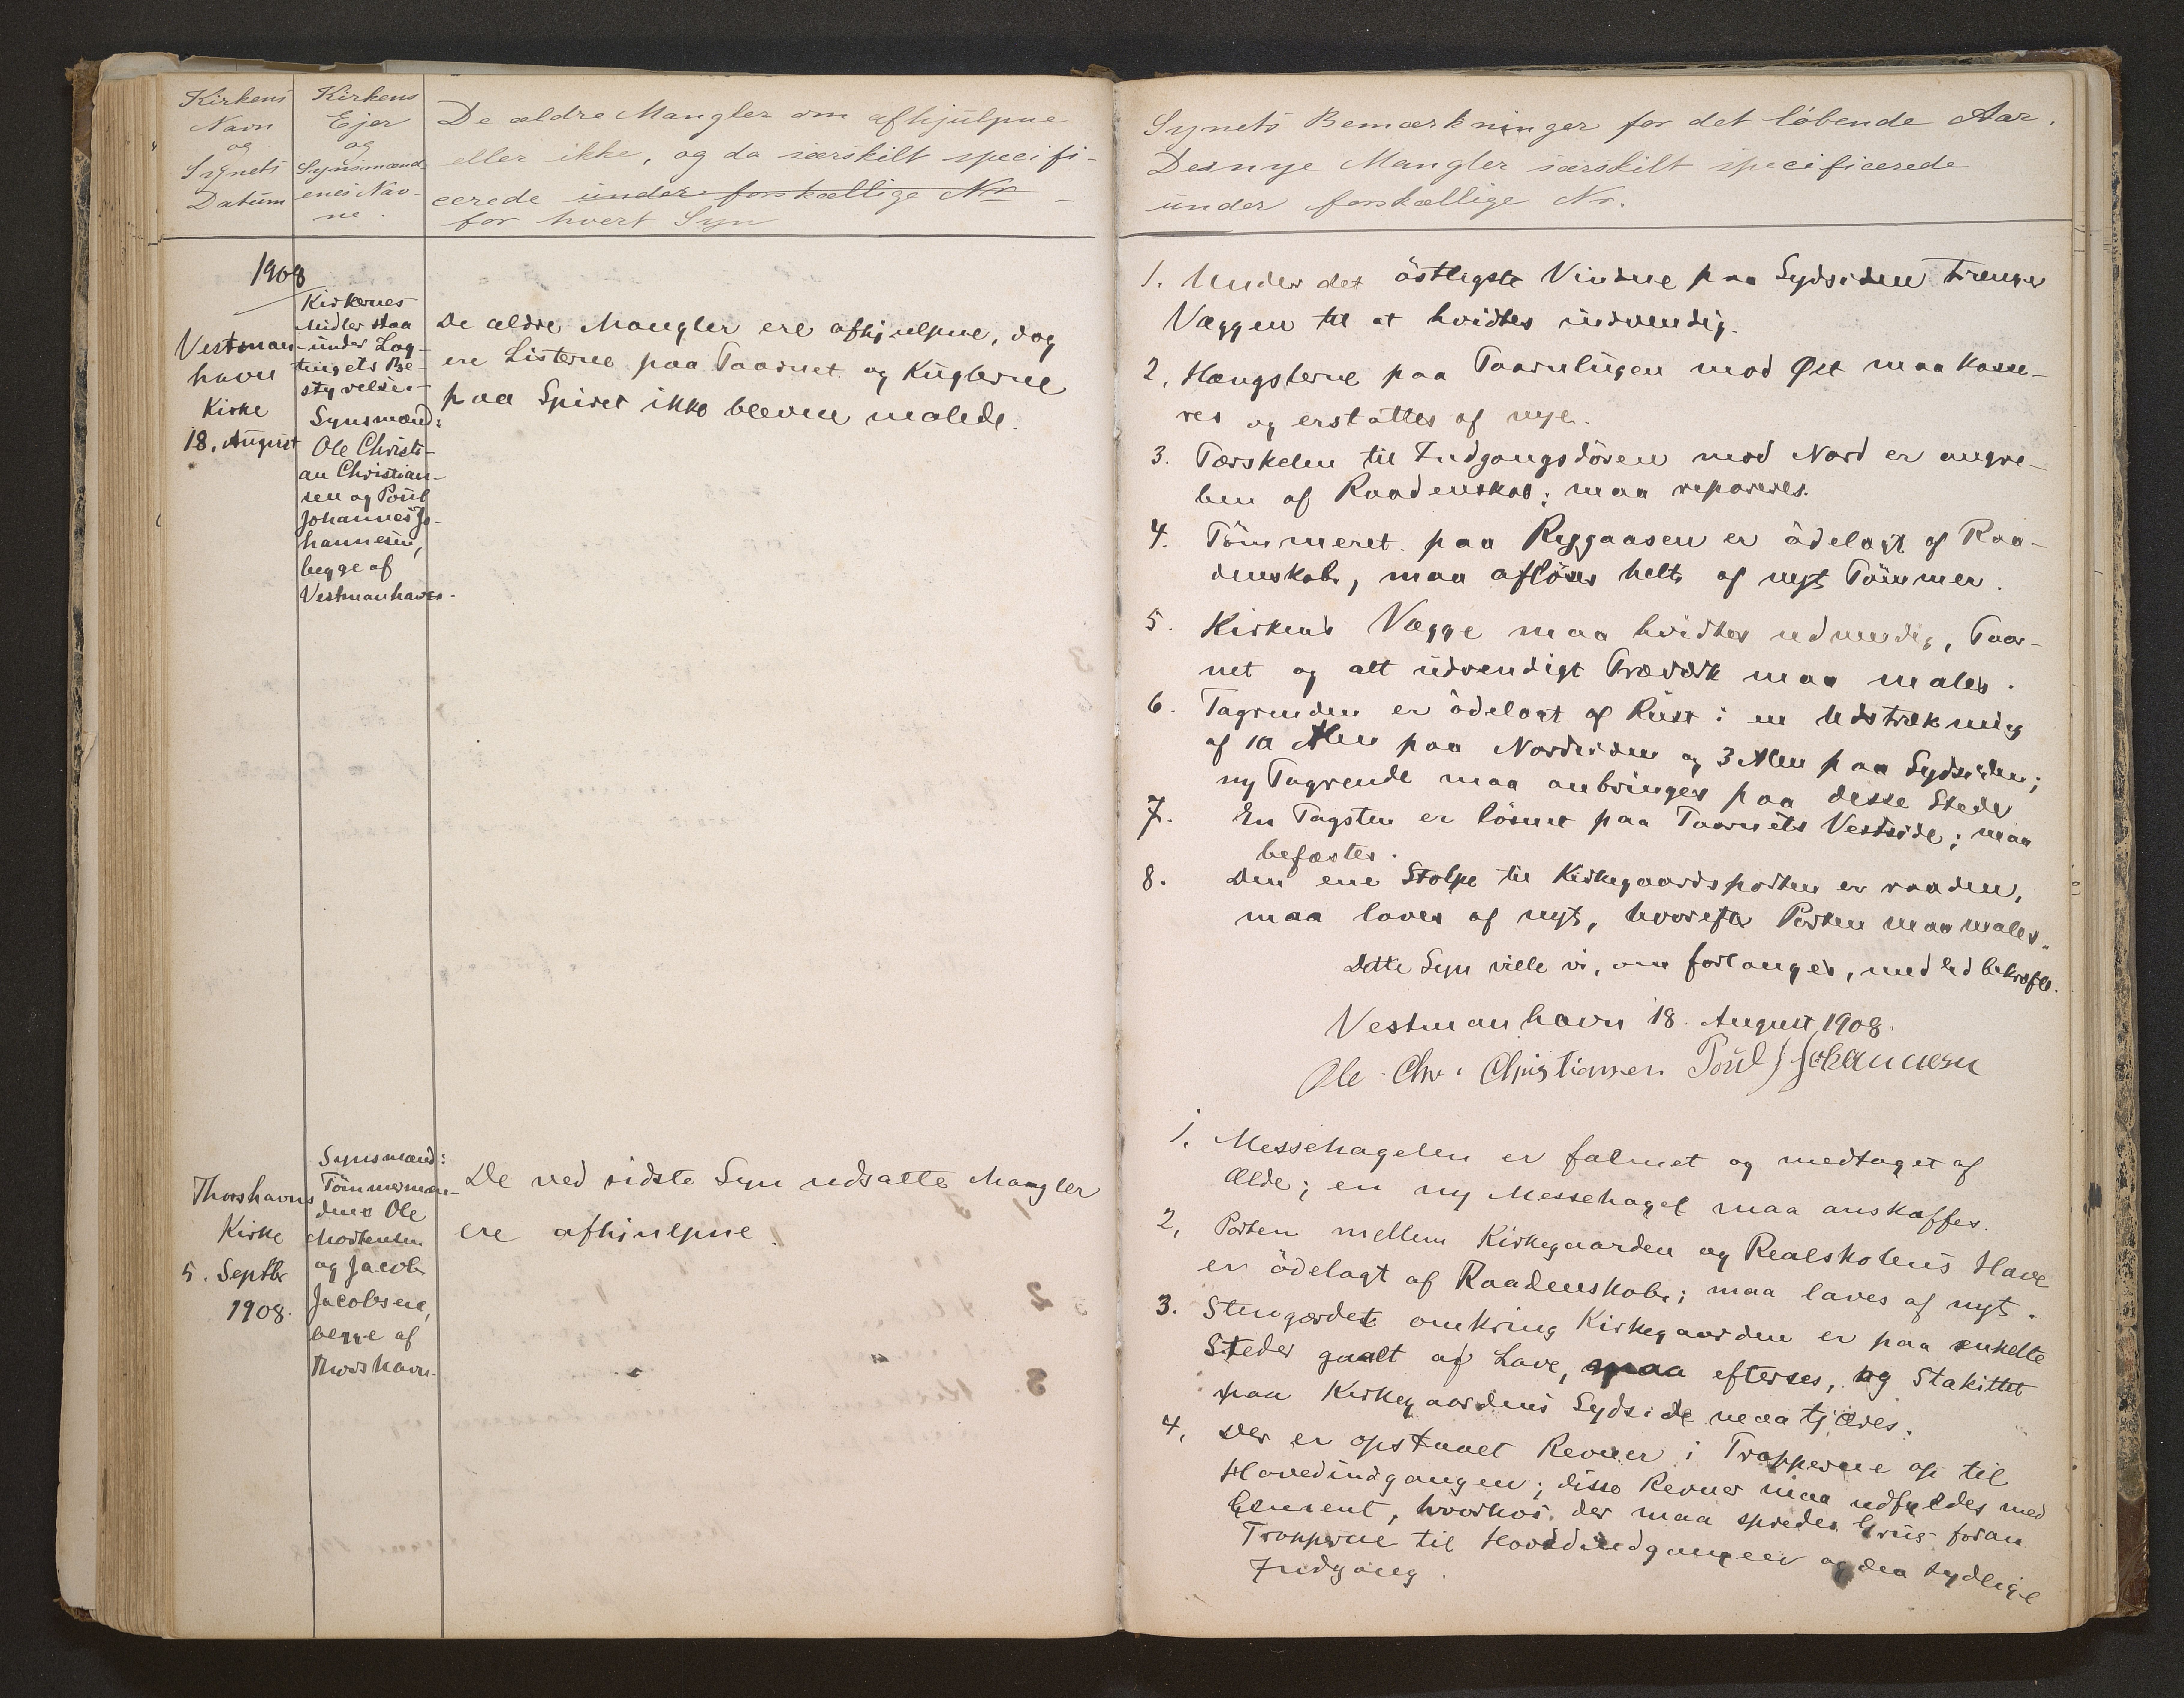 Kirkens
Navn
og
Synets
Datum
Kirkens
Ejer
og
Synsmænd-
enes Nav-
ne.
De ældre Mangler om afhjulpne
eller ikke, og da særskilt specifi-
cerede under forskællige Nr
for hvert Syn
1908
Vestman-
havn
Kirke
18. August
Kirkernes
Midler staa
under Lag-
tingets Be-
styrelse.
Synsmænd:
Ole Christi-
an Christian-
sen og Poul
Johannes Jo-
hannesen,
begge af
Vestmanhavn.
De ældre Mangler ere afhjulpne, dog
ere Listerne paa Taarnet og Kuglerne
paa Spiret ikke bleven malede.
Thorshavns
Kirke
5. Septbr
1908.
Synsmænd:
Tömmermæn-
dene Ole
Mortensen
og Jacob
Jacobsen,
begge af
Thorshavn.
De ved sidste Syn udsatte Mangler
ere afhjulpne.
Synets Bemærkninger for det löbende Aar.
De nye Mangler særskilt specificerede
under forskællige Nr.
1. Under det östligste Vindue paa Sydsiden trænger
Væggen til at hvidtes indvendig.
2. Hængslerne paa Taarnlugen mod Øst maa kasse-
res og erstattes af nye.
3. Tærskelen til Indgangsdören mod Nord er angre-
ben af Raadenskab; maa repareres.
4. Tömmeret paa Rygaasen er ödelagt af Raa-
denskab, maa aflöses helt af nyt Tömmer.
5. Kirkens Vægge maa hvidtes udvendig, Taar-
net og alt udvendigt Træværk maa males.
6. Tagrenden er ödelagt af Rust i en Udstrækning
af 10 Alen paa Nordsiden og 3 Alen paa Sydsiden;
ny Tagrende maa anbringes paa desse Steder
7. En Tagsten er lösnet paa Taarnets Vestside; maa
befæstes.
8. Den ene Stolpe til Kirkegaardsporten er raaden,
maa laves af nyt, hvorefter Porten maa males.
Dette Syn ville vi, om forlanges, med Ed bekræfte.
Vestmanhavn 18. August 1908.
Ole Chr. Christiansen Poul J Johannesen
1. Messehagelen er falmet og medtaget af
Ælde; en ny Messehagel maa anskaffes.
2. Porten mellem Kirkegaarden og Realskolens Have
er ödelagt af Raadenskab; maa laves af nyt.
3. Stengærdet omkring Kirkegaarden er paa enkelte
Steder gaalt af Lave, maa efterses, og Stakittet
paa Kirkegaardens Sydside maa tjæres.
4. Der er opstaaet Revner i Trapperne op til
Hovedindgangen; disse Revner maa udfyldes med
Cement, hvorhos der maa spredes Grus foran
Trapperne til Hovedindgangen og den sydlige
Indgang.